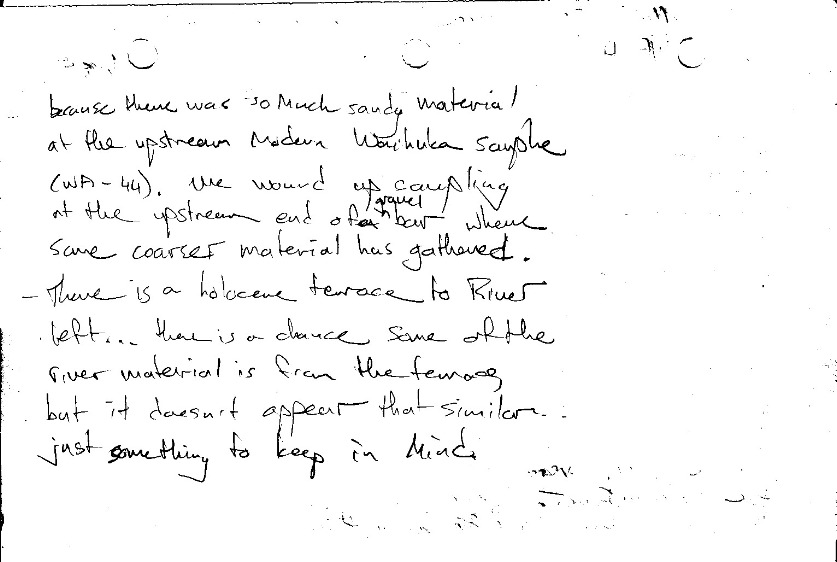 because there was so Much sandy material
at the upstream Modern Waihuka sample
(WA-44). We wound up sampling
at the upstream end of a gravel bar where
some coarser material has gathered.
- There is a holocene terrace to River
left... there is a chance some of the
river material is from the terrace
but it doesn't appear that similar..
just something to keep in Mind.